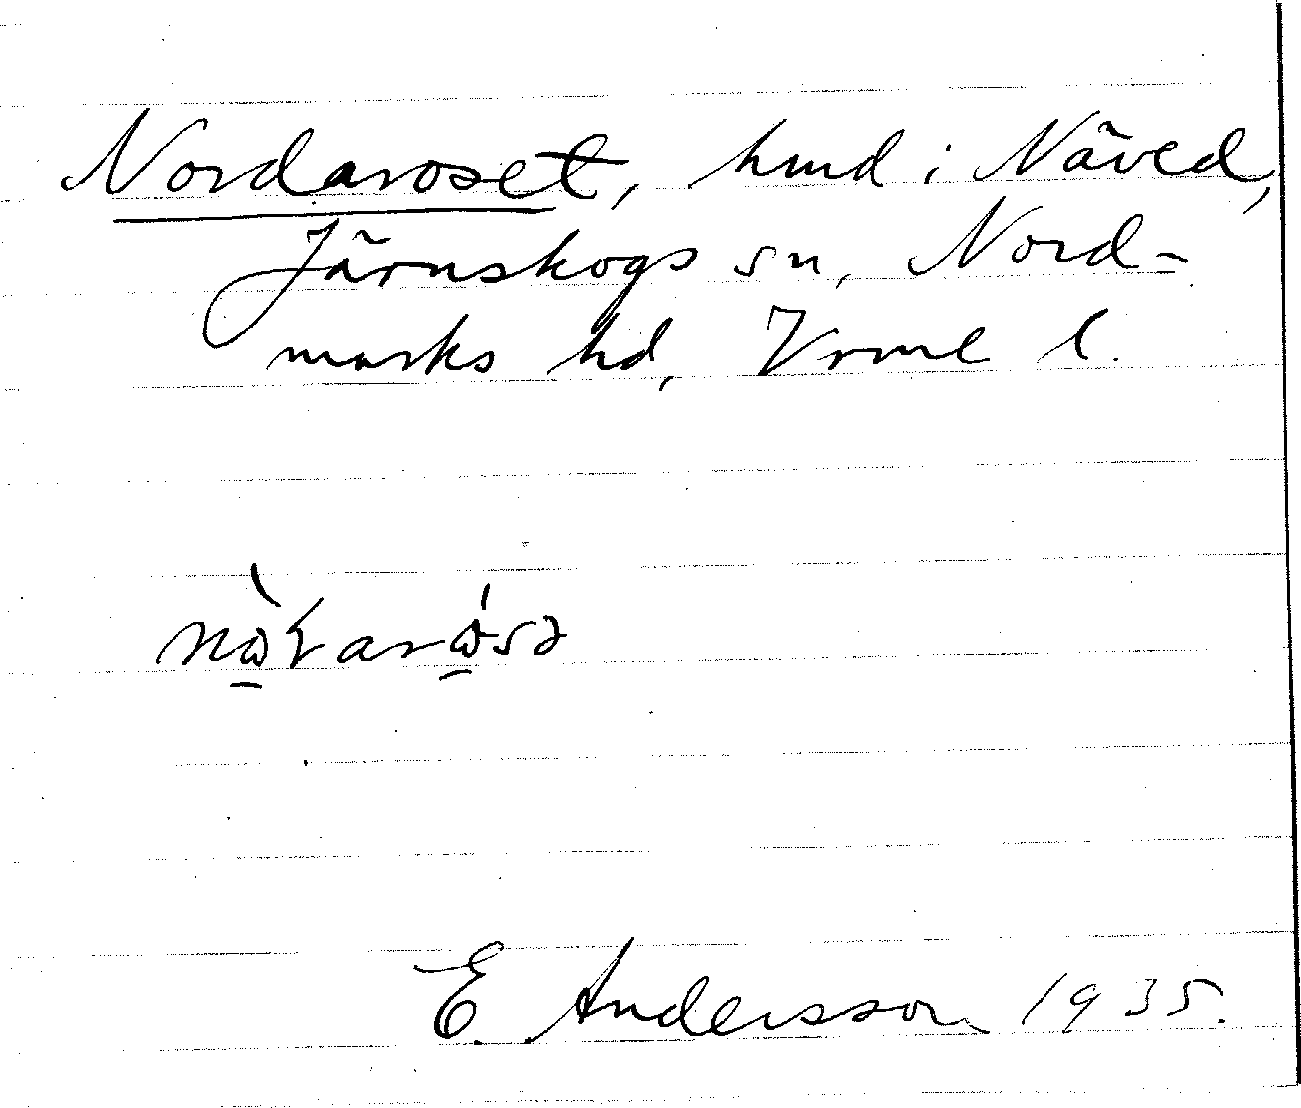 Nordaroset, hmd i Näved,
Järnskogs sn, Nord-
marks hd, Vrml l.
E. Andersson 1935.